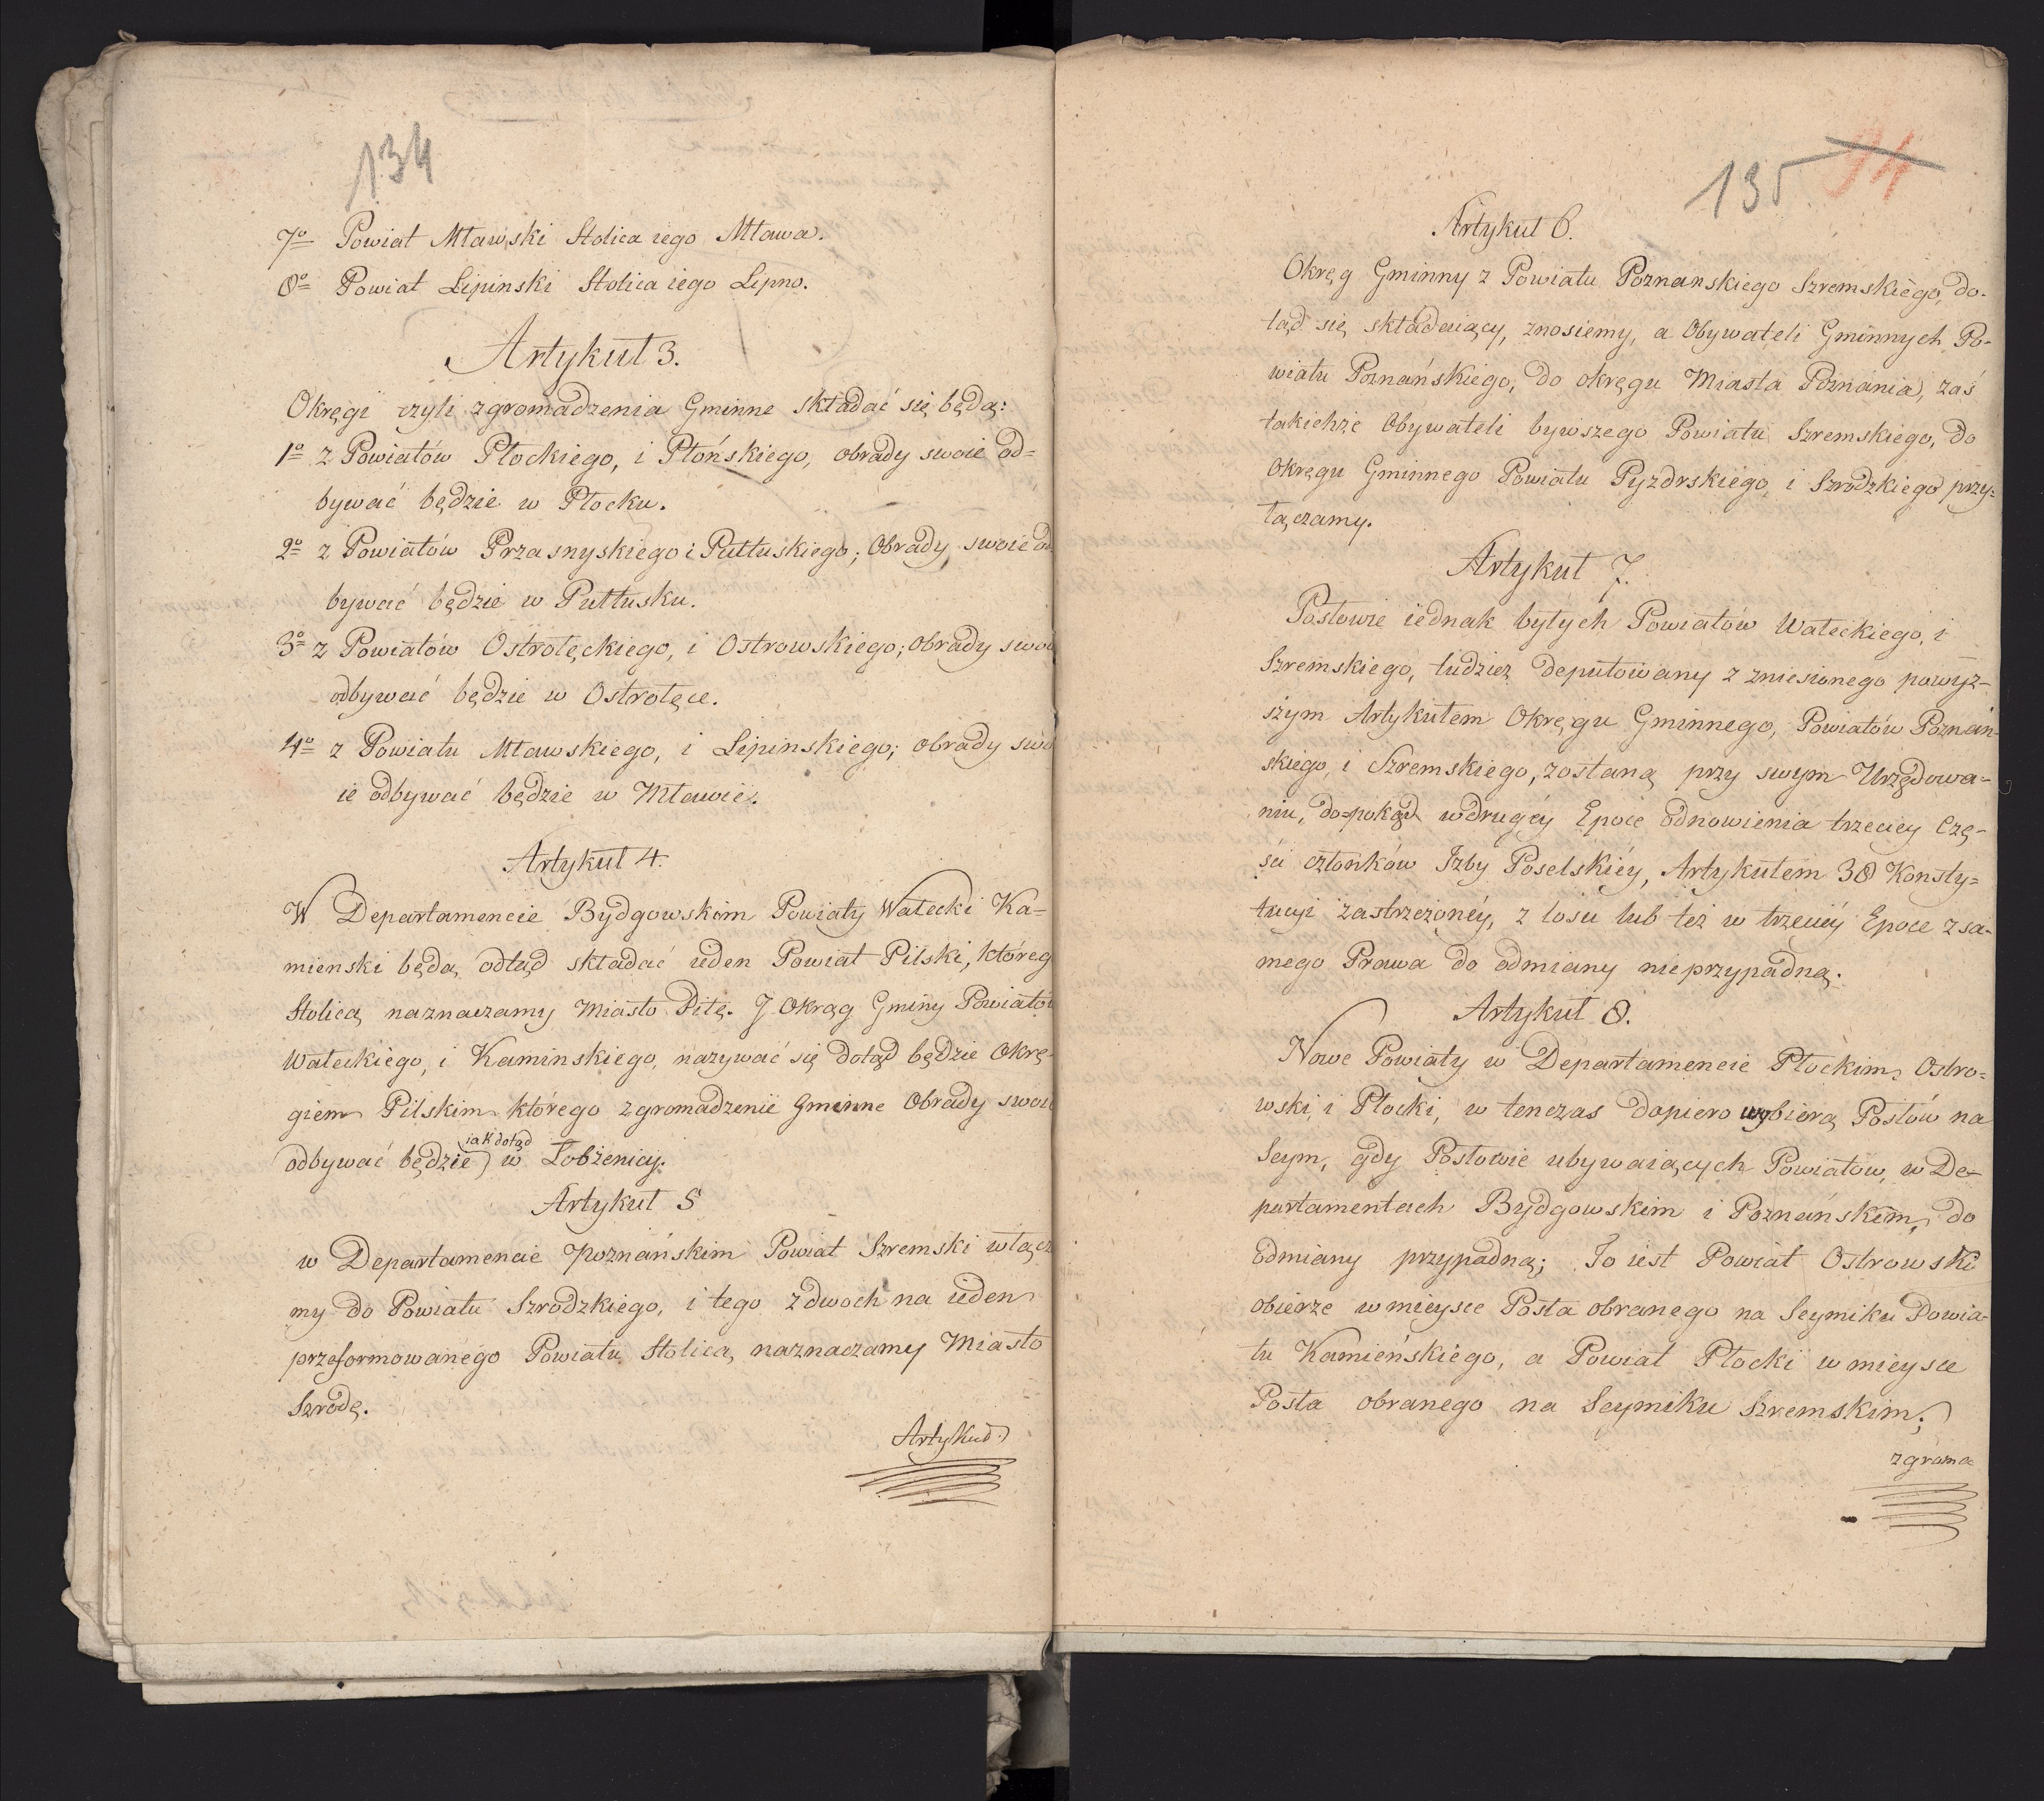 134
7o Powiat Mławski Stolica iego Mława.
8o Powiat Lipinski Stolica iego Lipno.
Artykuł 3.
Okręgi czyli zgromadzenia Gminne składać się będą:
1o z Powiatów Płockiego, i Płońskiego, obrady swoie od=
bywać będzie w Płocku.
2o z Powiatów Przasnyskiego i Pułtuskiego; Obrady swoie od
bywać będzie w Pułtusku.
3o z Powiatów Ostrołęckiego, i Ostrowskiego; obrady swoie
odbywać będzie w Ostrołęce.
4o z Powiatu Mławskiego, i Lipinskiego; obrady swo
ie odbywać będzie w Mławie.
Artykuł 4.
W Departamencie Bydgowskim Powiaty Wałecki Ka=
mienski będą odtąd składać ieden Powiat Pilski, któreg
Stolicą naznaczamy Miasto Piłę. I Okrąg Gminy Powiatów
Wałeckiego, i Kaminskiego, nazywać się dotąd będzie Okrę-
giem Pilskim którego zgromadzenie Gminne Obrady swoie
iak dotąd
odbywać będzie w Łobżenicy.
Artykuł 5
w Departamencie Poznańskim Powiat Szremski włącza
my do Powiatu Szrodzkiego, i tego z dwoch na ieden
przeformowanego Powiatu Stolicą naznaczamy Miasto
Szrodę.
Artykuł
135 94
Artykuł 6.
Okręg Gminny z Powiatu Poznanskiego Szremskiego, do-
tąd się składaiący, znosiemy, a Obywateli Gminnych Po-
wiatu Poznańskiego, do okręgu Miasta Poznania, zaś
takichże Obywateli bywszego Powiatu Szremskiego, do
Okręgu Gminnego Powiatu Pyzdrskiego, i Szrodzkiego przy=
łączamy.
Artykuł 7.
Posłowie iednak byłych Powiatów Wałeckiego, i
Szremskiego, tudzież deputowany z zniesionego powyż-
szym Artykułem Okręgu Gminnego, Powiatów Poznań-
skiego, i Szremskiego, zostaną przy swym Urzędowa-
niu, do=pokąd w drugéy Epoce odnowienia trzeciey Czę-
ści członków Izby Poselskiéy, Artykułem 38 Konsty=
tucyi zastrzeżonéy, z losu lub też w trzeciéy Epoce z sa-
mego Prawa do odmiany nieprzypadną.
Artykuł 8.
Nowe Powiaty w Departamencie Płockim, Ostro=
wski, i Płocki, w tenczas dopiero wybiorą Posłów na
Seym, gdy Posłowie ubywaiących Powiatów, w De-
partamentach Bydgowskim i Poznańskim, do
odmiany przypadną; To iest Powiat Ostrowski
obierze w mieysce Posła obranego na Seymiku Powia-
tu Kamieńskiego, a Powiat Płocki w mieysce
Posła obranego na Seymiku Szremskim;
zgroma